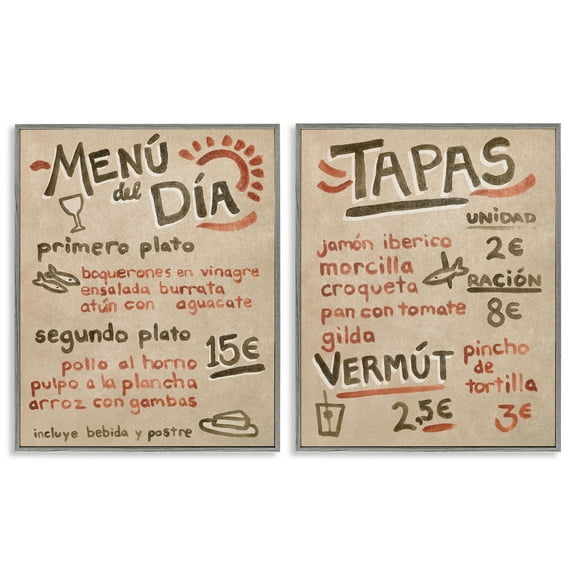 MENÚ
del
DÍA
primero plato
boquerones en vinagre
ensalada burrata
atún con aguacate
segundo plato
15€
pollo al horno
pulpo a la plancha
arroz con gambas
incluye bebida y postre
TAPAS
UNIDAD
2€
RACIÓN
8€
jamón iberico
morcilla
croqueta
pan con tomate
gilda
VERMÚT
2,5€
pincho
de
tortilla
3€